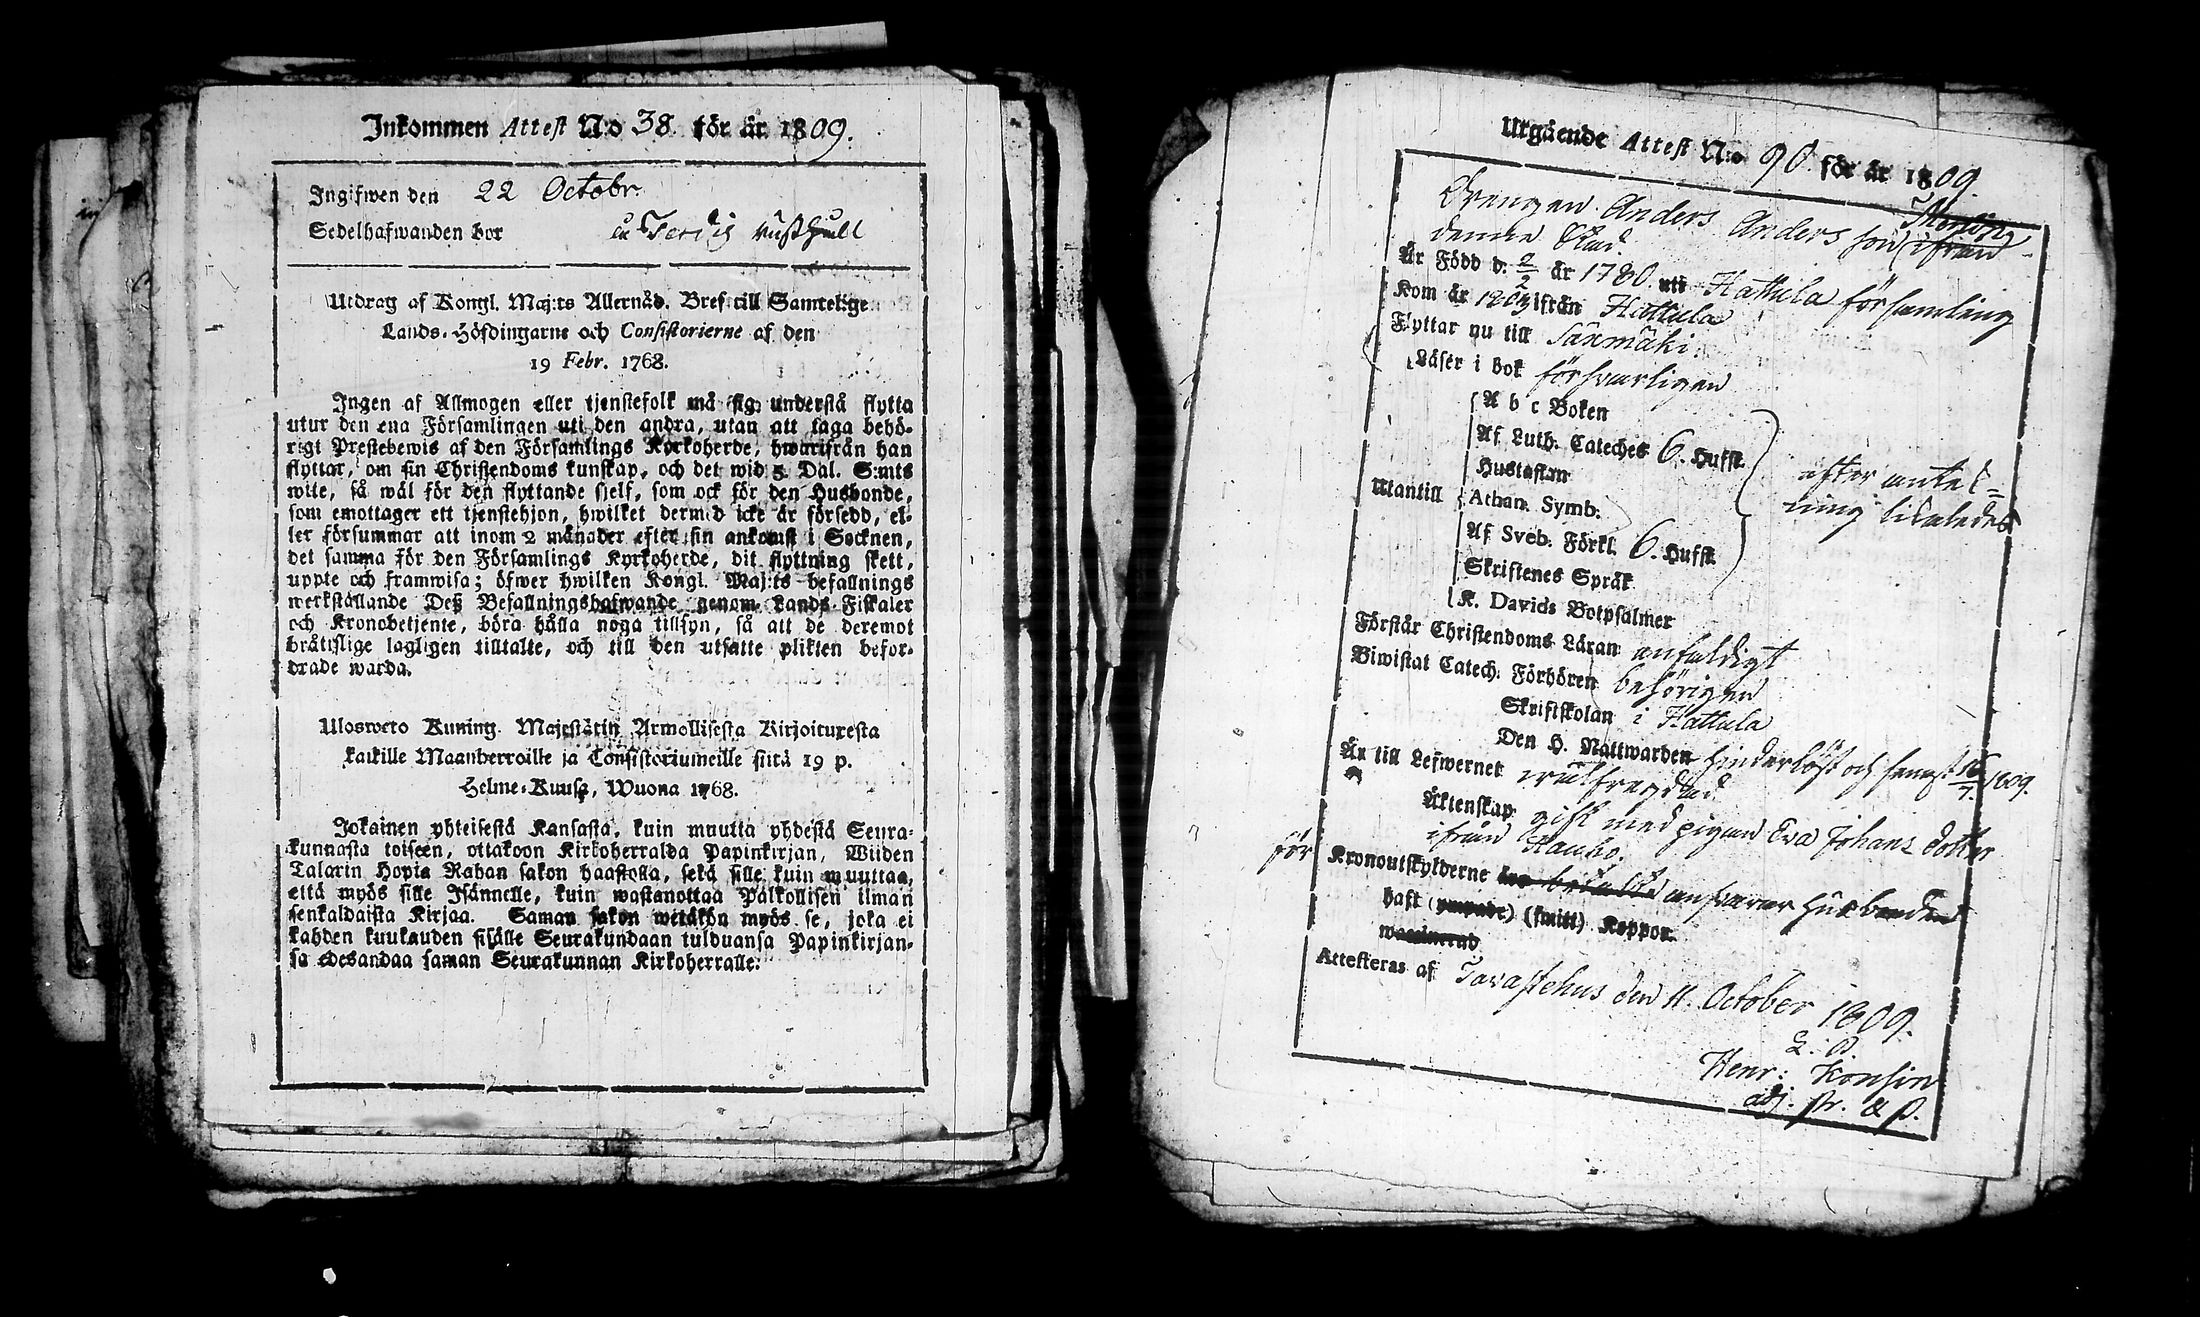 Inkommen Attest N:o 38 för år 1809.
Ingifwen den 22 Octobr.
Sedelhafwanden bor
Utdrag af Kongl. Maj:ts Allernåd. Bref till Samtelige
Lands-Höfdingarne och Consistorierne af den
19 Febr. 1768.
Ingen af Allmogen eller tjenstefolk må sig understå flytta
utur den ena Församlingen uti den andra, utan att taga behö-
rigt Prestebewis af den Församlings Kyrkoherde, hwarifrån han
flyttar, om sin Christendoms kunskap, och det wid 5 Dal. S:mts
wite, så wäl för den flyttande sjelf, som ock för den Husbonde,
som emottager ett tjenstehjon, hwilket dermed icke är försedd, el-
ler försummar att inom 2 månader efter sin ankomst i Socknen,
det samma för den Församlings Kyrkoherde, dit flyttning skett,
uppte och framwisa; öfwer hwilken Kongl. Maj:ts befallnings
werkställande Deß Befallningshafwande genom Lands-Fiskaler
och Kronobetjente, böra hålla noga tillsyn, så att de deremot
bråttslige lagligen tilltalte, och till den utsatte plikten befor-
drade warda.
Ulosweto Kuning. Majestätin Armollisesta Kirjoituxesta
kaikille Maanherroille ja Consistoriumeille siitä 19 p.
Helme-Kuusa, Wuona 1768.
Jokainen yhteisestä Kansasta, kuin muutta yhdestä Seura-
kunnasta toiseen, ottakoon Kirkoherralda Papinkirjan, Wiiden
Talarin Hopia Rahan sakon haastolla, sekä sille kuin muuttaa,
että myös sille Isännelle, kuin wastanottaa Palkollisen ilman
senkaldaista Kirjaa. Saman sakon wetäkön myös se, joka ei
kahden kuukauden sisälle Seurakundaan tulduansa Papinkirjan-
sa edesandaa saman Seurakunnan Kirkoherralle.
Utgående Attest N:o 90 för år 1809.
Drengen Anders Anders son ifrån
denne Stad.
Är Född d. 2/2 år 1780 uti Hattula församling
Kom år 1809 ifrån Hattula
Flyttar nu till Sänmäki
Läser i bok försvarligen
A b c Boken
Af Luth. Cateches 6. Hufst.
Hustaflan
Utantill Athan. Symb.
Af Sveb. Förkl. 6. Hufst.
Skriftenes Språk
K. Davids Botpsalmer
efter antek-
ning likaledes
Förstår Christendoms Läran enfaldigt
Biwistat Catech. Förhören behörigen
Skriftskolan i Hattula
Den H. Nattwarden hinderlöst och senast 16/7 1809.
Är till Lefwernet wälfrägdad
Äktenskap gift med pigan Eva Johans dotter
ifrån Hauho.
för Kronoutskylderne ansvarar Husbonden
haft (ympade) (smitt) Koppor.
waccinerad
Attesteras af Tavastehus den 11. October 1809.
L. S.
Henr: Konsin
adj. &